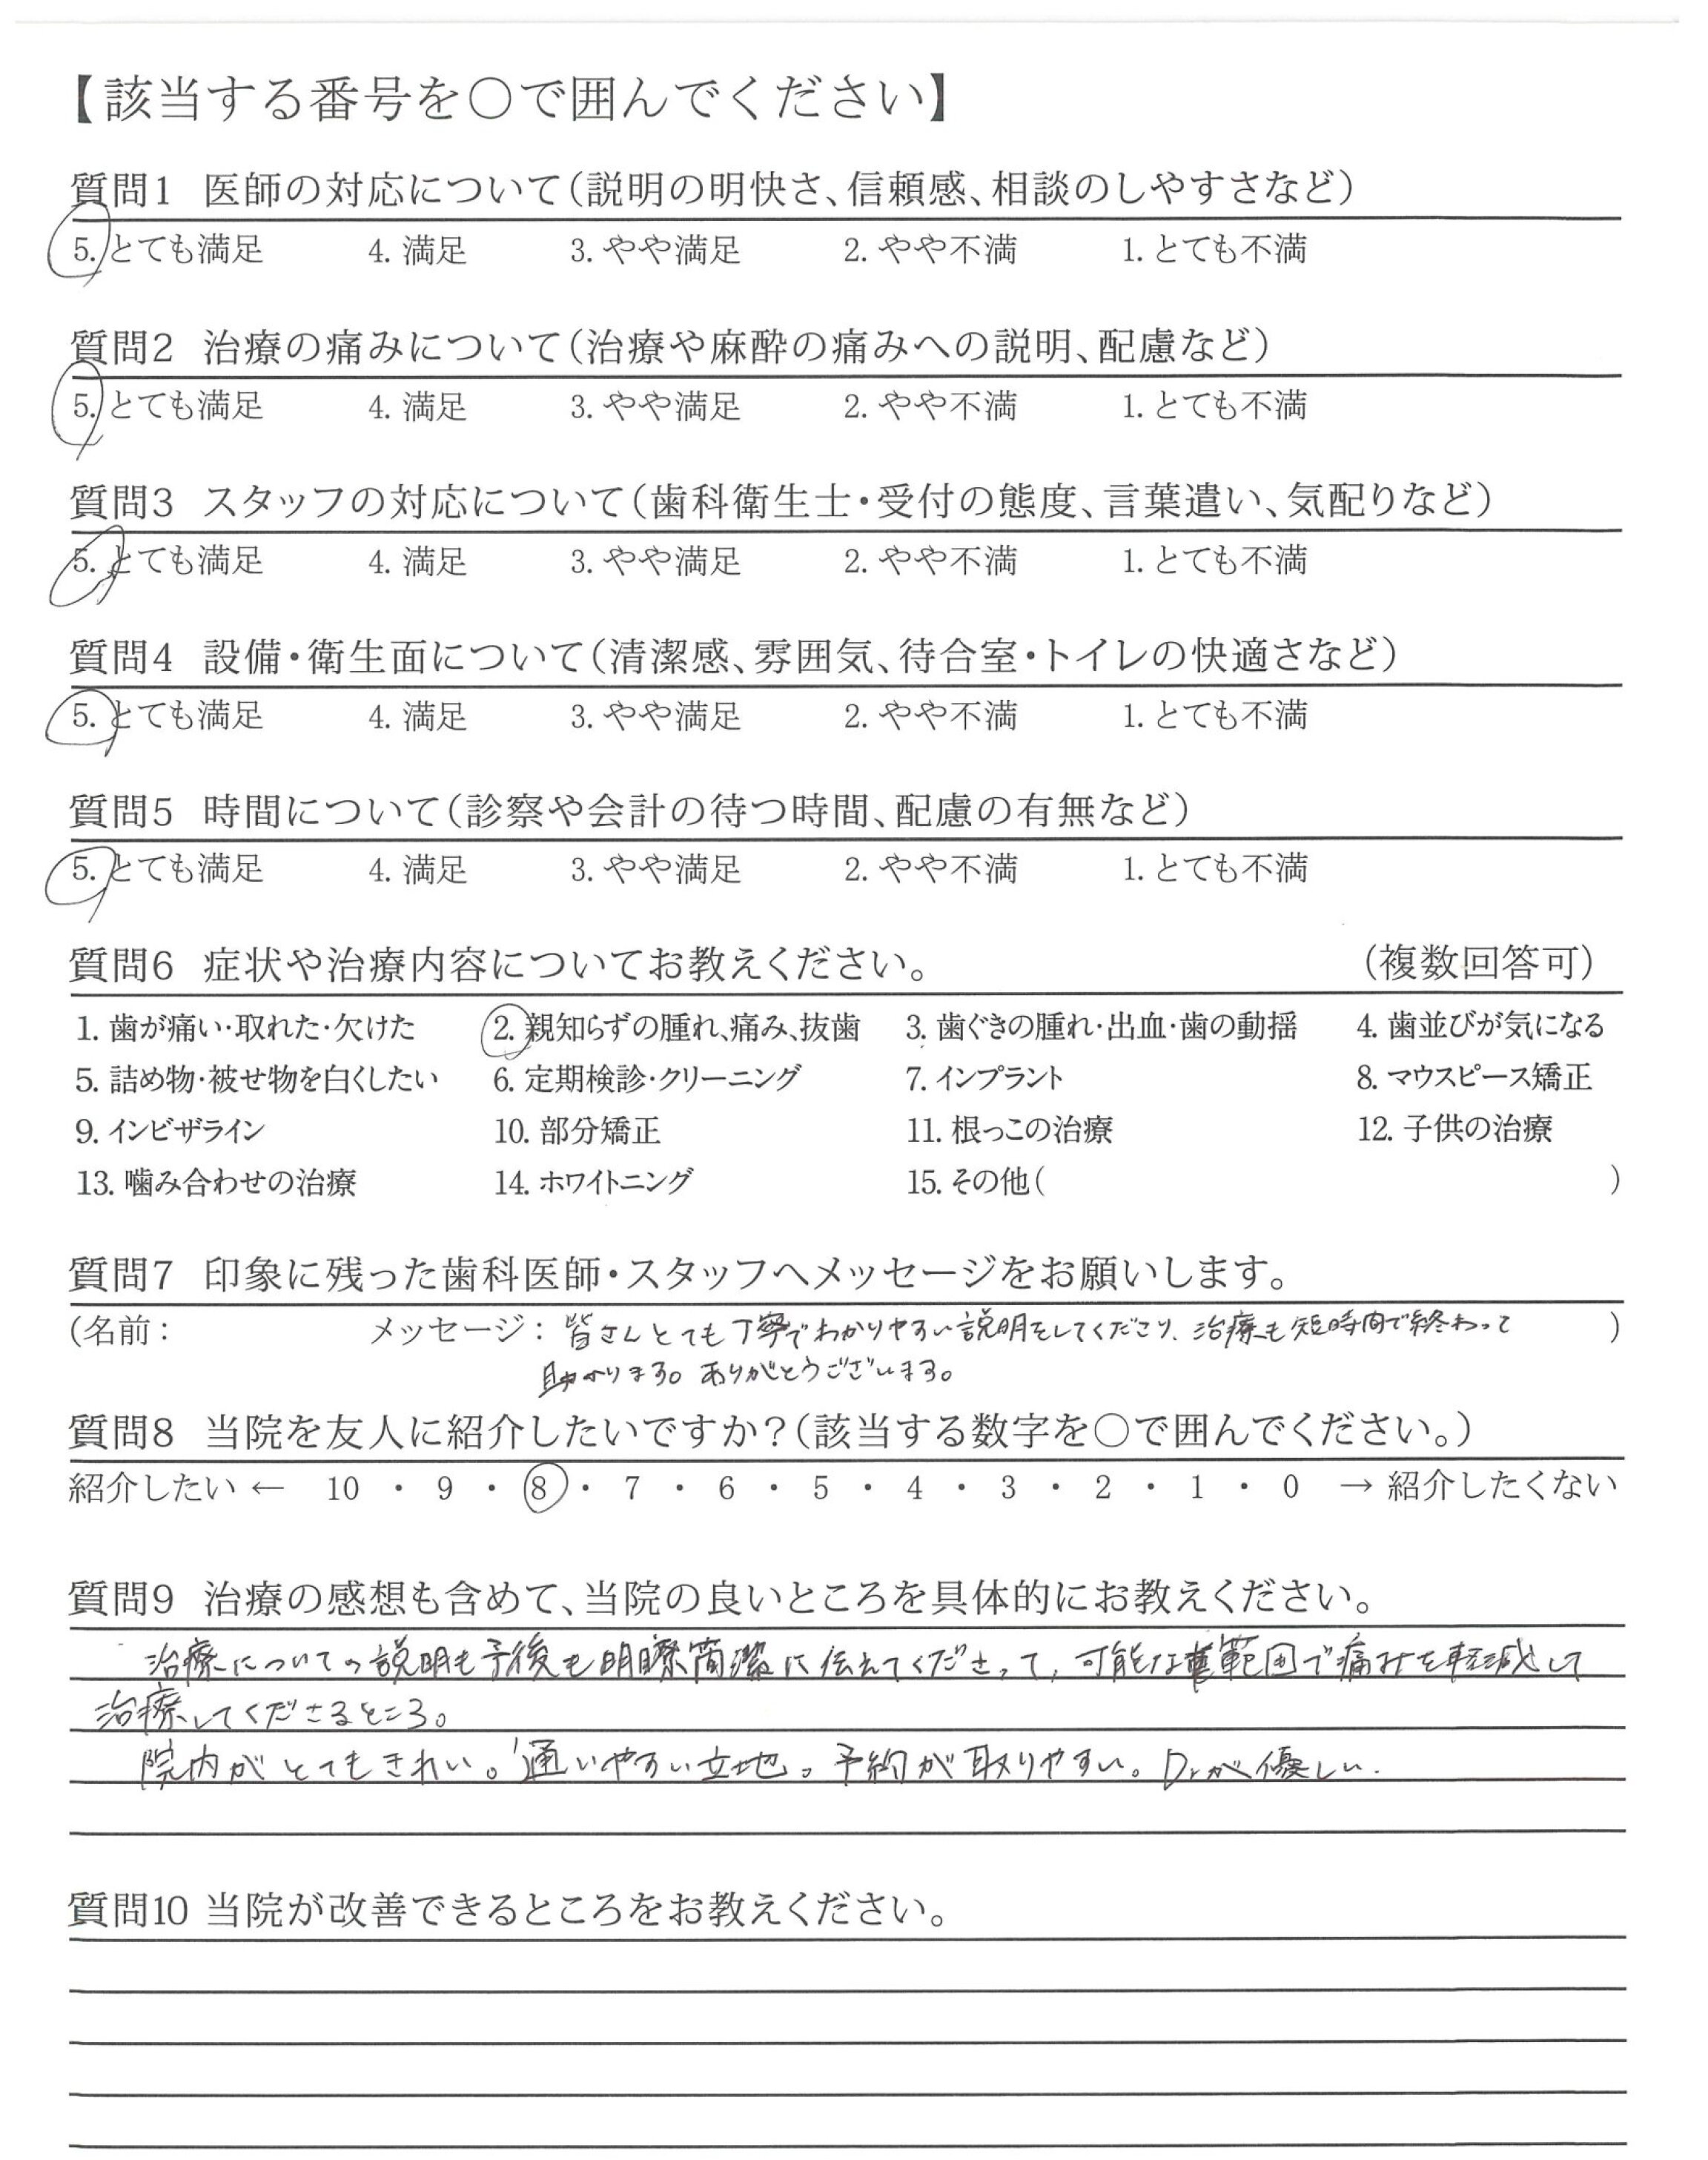 【該当する番号を○で囲んでください】
質問1 医師の対応について(説明の明快さ、信頼感、相談のしやすさなど)
5. とても満足 4. 満足 3. やや満足 2. やや不満 1. とても不満
質問2 治療の痛みについて(治療や麻酔の痛みへの説明、配慮など)
5. とても満足 4. 満足 3. やや満足 2. やや不満 1. とても不満
質問3 スタッフの対応について(歯科衛生士・受付の態度、言葉遣い、気配りなど)
5. とても満足 4. 満足 3. やや満足 2. やや不満 1. とても不満
質問4 設備・衛生面について(清潔感、雰囲気、待合室・トイレの快適さなど)
5. とても満足 4. 満足 3. やや満足 2. やや不満 1. とても不満
質問5 時間について(診察や会計の待つ時間、配慮の有無など)
5. とても満足 4. 満足 3. やや満足 2. やや不満 1. とても不満
質問6 症状や治療内容についてお教えください。 (複数回答可)
1. 歯が痛い・取れた・欠けた 2. 親知らずの腫れ、痛み、抜歯 3. 歯ぐきの腫れ・出血・歯の動揺 4. 歯並びが気になる
5. 詰め物・被せ物を白くしたい 6. 定期検診・クリーニング 7. インプラント 8. マウスピース矯正
9. インビザライン 10. 部分矯正 11. 根っこの治療 12. 子供の治療
13. 噛み合わせの治療 14. ホワイトニング 15. その他( )
質問7 印象に残った歯科医師・スタッフへメッセージをお願いします。
(名前: メッセージ: 皆さんとても丁寧でわかりやすい説明をしてくださり、治療も短時間で終わって )
助かります。ありがとうございます。
質問8 当院を友人に紹介したいですか?(該当する数字を○で囲んでください。)
紹介したい ← 10 ・ 9 ・ 8 ・ 7 ・ 6 ・ 5 ・ 4 ・ 3 ・ 2 ・ 1 ・ 0 → 紹介したくない
質問9 治療の感想も含めて、当院の良いところを具体的にお教えください。
治療についての説明も予後も明瞭簡潔に伝えてくださって、可能な範囲で痛みを軽減して
治療してくださるところ。
院内がとてもきれい。通いやすい立地。予約が取りやすい。Drが優しい.
質問10 当院が改善できるところをお教えください。